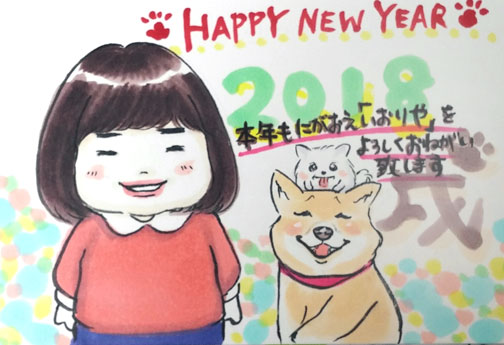 HAPPY NEW YEAR
2018
本年もにがおえ「いおりや」を
よろしくおねがい
致します
戌